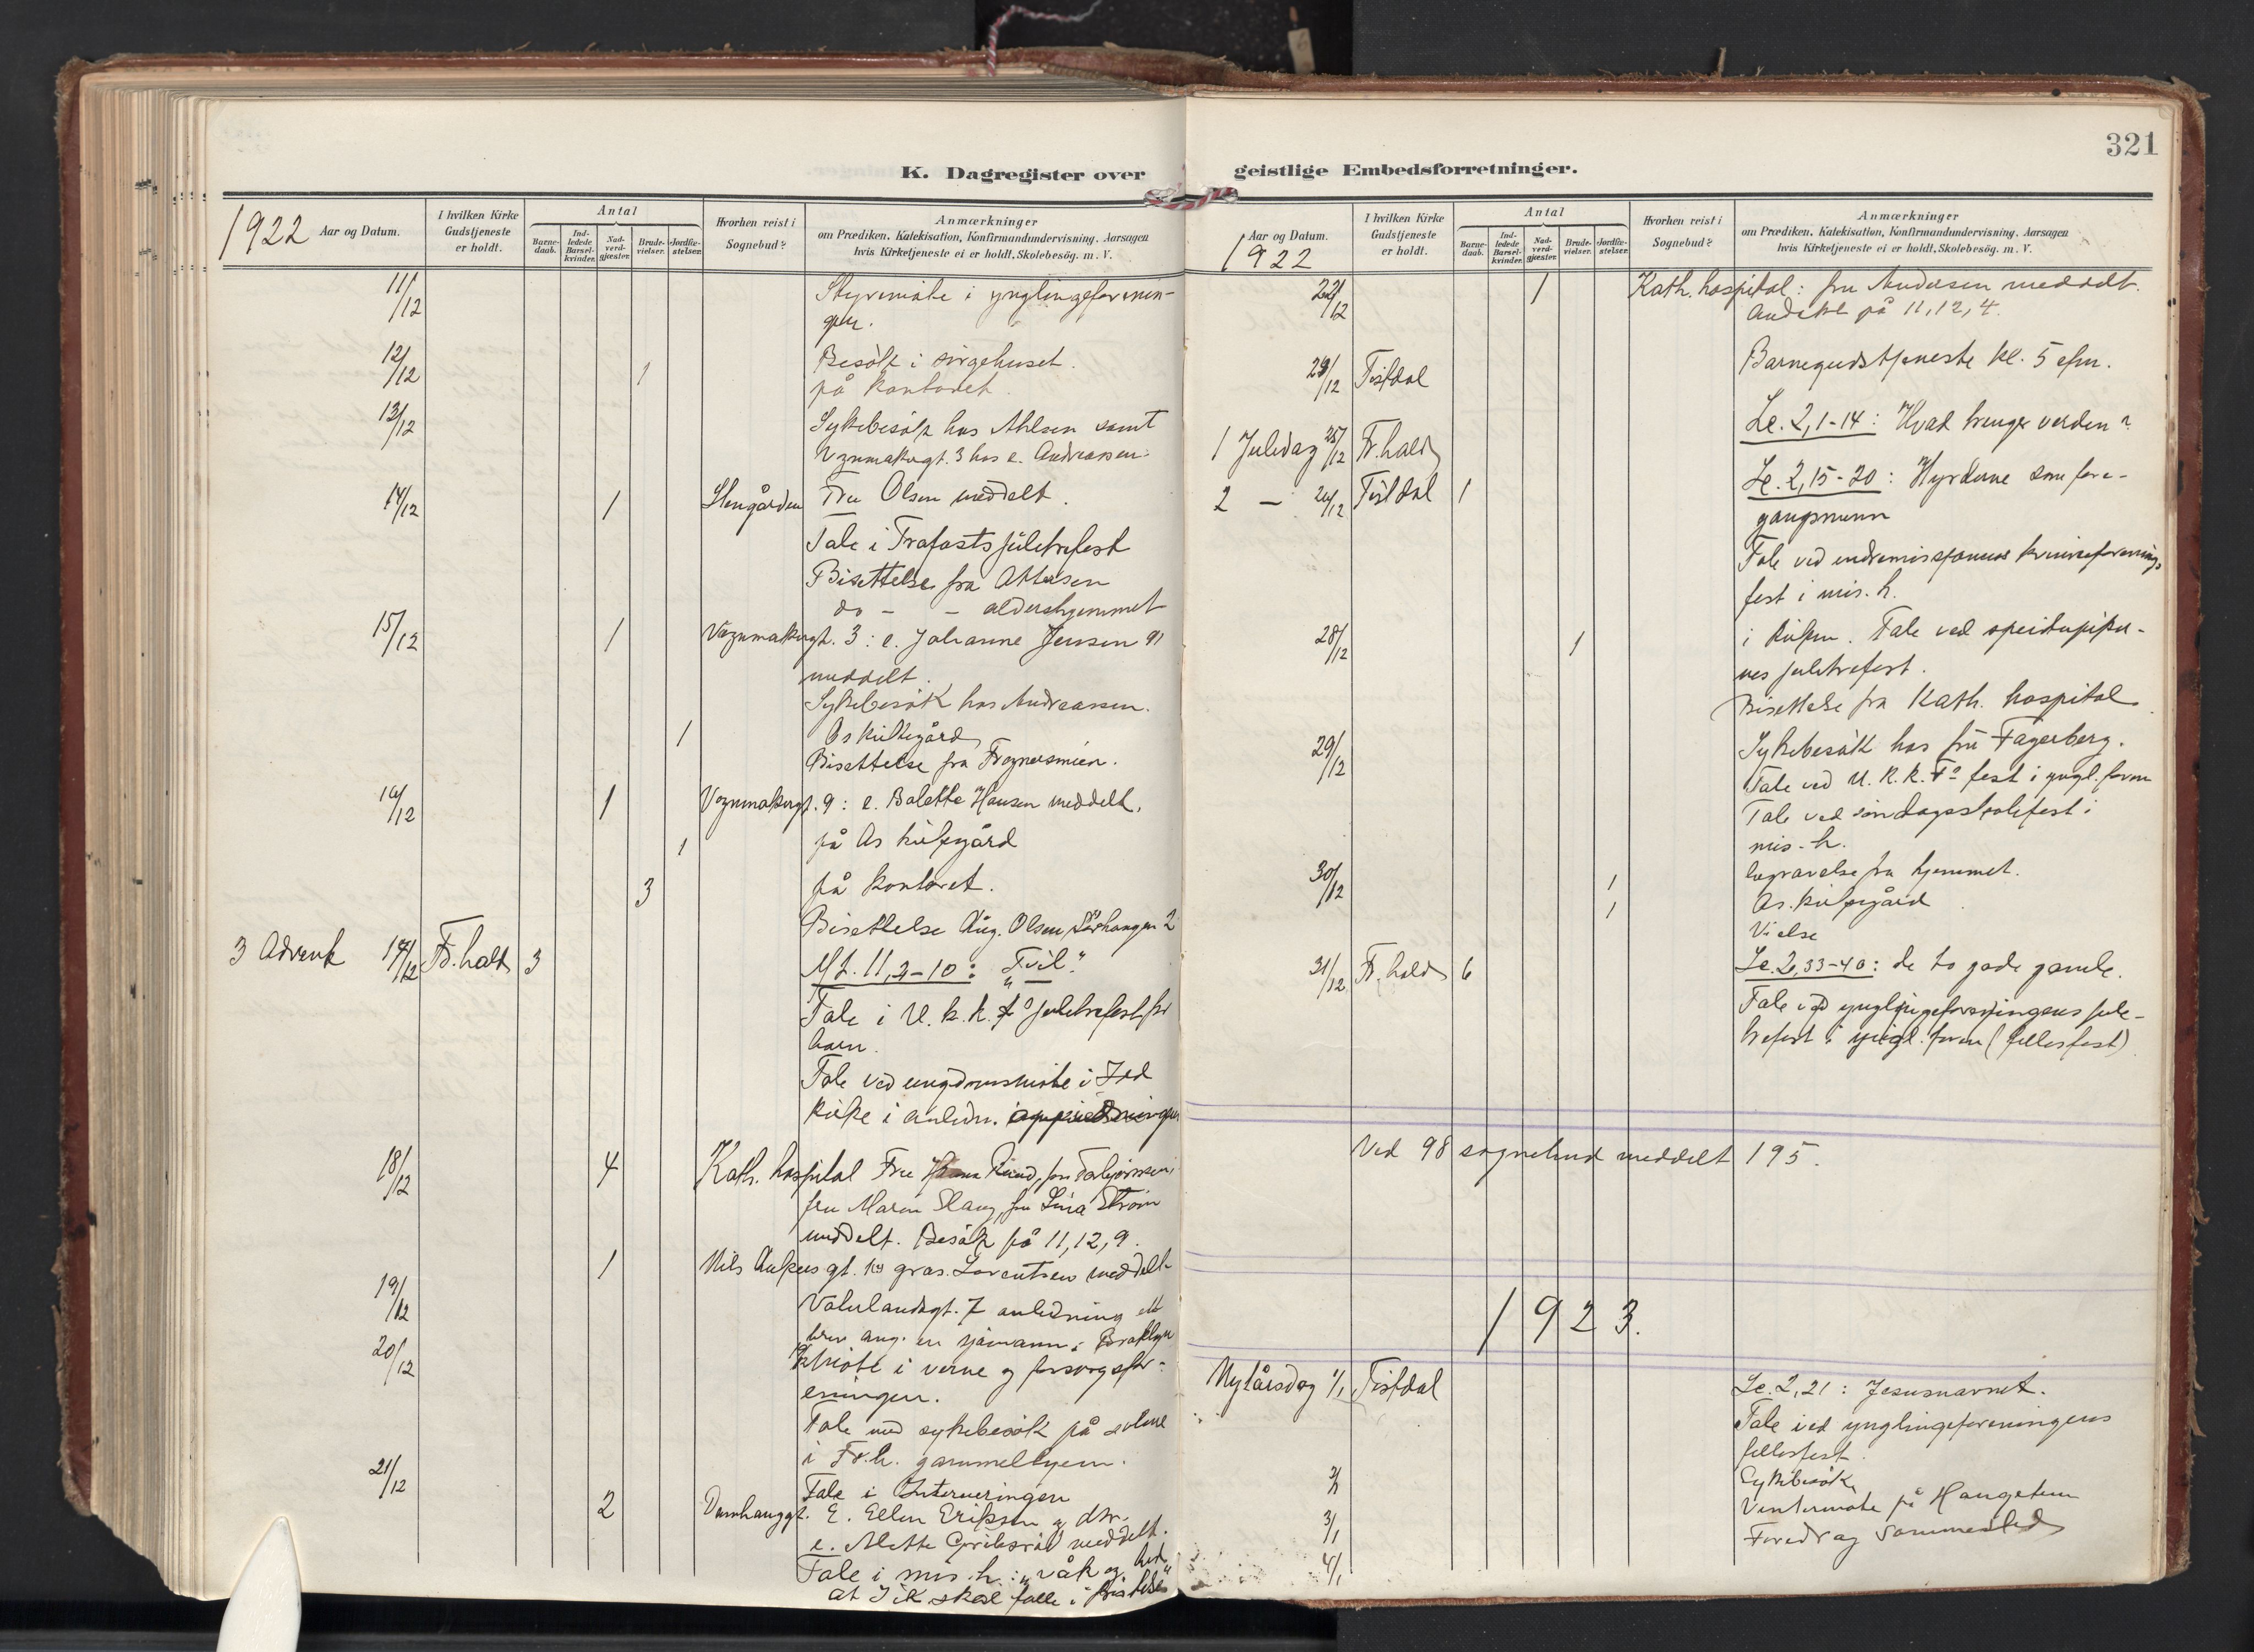 321
K. Dagregister over
1922 Aar og Datum.
I hvilken Kirke Gudstjeneste er holdt.
Antal
Barne-daab.
Ind-ledede Barsel-kvinder.
Nad-verd-gjæster.
Brude-vielser.
Jordfæ-stelser.
Hvorhen reist i Sognebud?
Anmærkninger
om Prædiken, Katekisation, Konfirmandundervisning, Aarsagen
hvis Kirketjeneste ei er holdt, Skolebesög. m. V.
11/12 Styremøte i ynglingeforenin-
gen.
12/12 Besök i sörgehuset.
1 på kontoret.
13/12 Sykebesök hos Ahlsen samt
Vognmakergt. 3 hos e. Andreassen.
14/12 1 Stengården Fru Olsen meddelt.
Tale i Trofasts juletrefest
Bisettelse fra
do - - aldershjemmet
15/12 1 Vognmakergt. 3: e. Johanne Jensen 91
meddelt.
Sykebesök hos Andreassen.
1 Os kirkegård
Bisettelse fra
16/12 1 Vognmakergt. 9: e. Bolette Hansen meddelt.
1 på Os kirkegård
3 på kontoret.
Bisettelse Aug. Olsen, 2
3 Advent 17/12 Fr.hald 3 Mt. 11,2-10: "Tvil."
Tale i U.k.k.f juletrefest for
barn.
Tale ved ungdomsmöte i Idd
kirke i anledn.
18/12 4 Kath. hospital Fru
fru Maren Slang, fru Lina Ström
meddelt. Besök på 11,12,9.
1 Nils gt. Lorentsen meddelt
19/12 Volulandsgt. 7 anledning
brev ang. en sjömann i Brooklyn
20/12 möte i verne og forsorgsfor-
eningen.
Tale med sykebesök på
i Fr.h. gammelhjem.
21/12 Tale i Interneringen
2 Damhauggt. E. Ellen Eriksen og dtr.
e. Mette meddelt.
Tale i mis.h: "våk og bed
at I ik skal falle i fristelse"
geistlige Embedsforretninger.
Aar og Datum.
1922
I hvilken Kirke Gudstjeneste er holdt.
Antal
Barne-daab.
Ind-ledede Barsel-kvinder.
Nad-verd-gjæster.
Brude-vielser.
Jordfæ-stelser.
Hvorhen reist i Sognebud?
Anmærkninger
om Prædiken, Katekisation, Konfirmandundervisning, Aarsagen
hvis Kirketjeneste ei er holdt, Skolebesög. m. V.
22/12 1 Kath. hospital: fru Andersen meddelt.
Andakt på 11,12,4.
23/12 Tistdal Barnegudstjeneste kl. 5 efm.
1 Juledag 25/12 Fr.hald Lc. 2,1-14: Hvad trenger verden?
2 - 26/12 Tistdal 1 Lc. 2,15-20: Hyrderne som fore-
gangsmenn
Tale ved indremissionens kvinneforenings
fest i mis.h.
28/12 1 i kirken. Tale ved speiderpiker-
nes juletrefest.
Bisettelse fra Kath. hospital
29/12 Sykebesök hos fru Fagerberg.
Tale ved U.K.K.F fest i yngl.foren
Tale ved söndagsskolefest i
mis.h.
30/12 1 begravelse fra hjemmet.
1 Os. kirkegård
Vielse
31/12 Fr.hald 6 Lc. 2,33-40: de to gode gamle.
Tale ved ynglingeforeningens jule-
trefest i yngl.foren (fellesfest)
Ved 98 sognebud meddelt 195.
1923.
Nytårsdag 1/1 Tistdal Lc. 2,21: Jesusnavnet.
Tale ved ynglingeforeningens
fellesfest.
2/1 Sykebesök
3/1 Ventemöte på Haugetun
4/1 Foredrag sammested